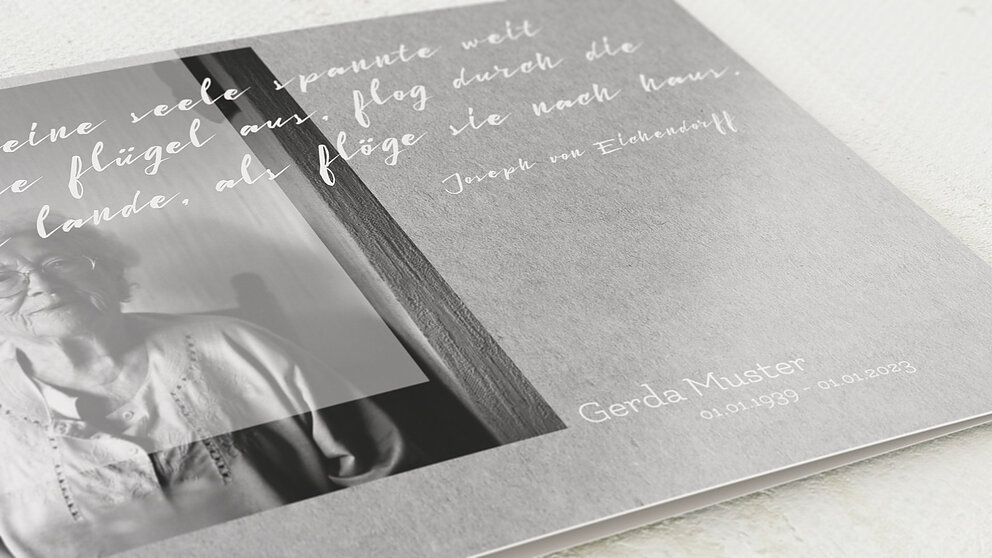 eine seele spannte weit
e flügel aus, flog durch die
lande, als flöge sie nach haus.
Joseph von Eichendorff
Gerda Muster
01.01.1939 - 01.01.2023